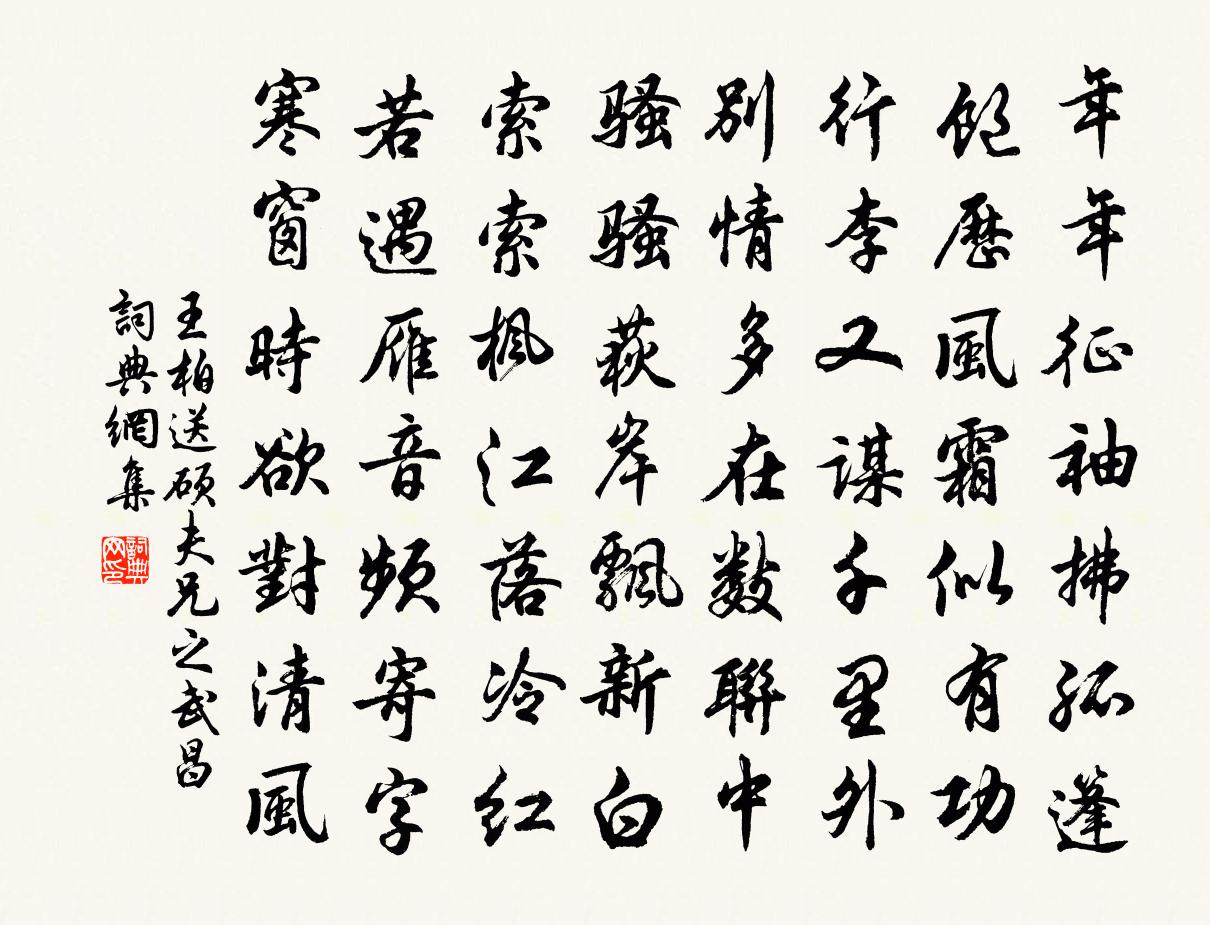 年年征袖拂孤蓬
飽歷風霜似有功
行李又謀千里外
別情多在數聯中
騷騷荻岸飄新白
索索楓江落冷紅
若遇雁音頻寄字
寒窗時欲對清風
王柏送碩夫兄之武昌
詞典網集
詞典網印